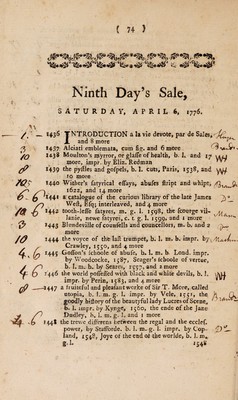 ( 74 )
Ninth Day's Sale,
SATURDAY, APRIL 6, 1776.
1436 INTRODUCTION a la vie devote, par de Sales,
and 8 more
1437 Alciati emblemata, cum fig. and 6 more
1438 Moulton's myrror, or glasse of health, b. l. and 17
more, impr. by Eliz. Redman
1439 the pystles and gospels, b. l. cutt, Paris, 1538, and
10 more
1440 Wither's satyrical essays, abuses stript and whipt,
1622, and 14 more
1441 a catalogue of the curious library of the late James
West, Esq; interleaved, and 4 more
1442 tooth-lesse satyres, m. g. l. 1598, the scourge vil-
lanie, newe satyres, c. t. g. l. 1599, and 1 more
1443 Blondeville of counsells and councellors, m. b. and 2
more
1444 the voyce of the last trumpet, b. l. m. b. impr. by
Crawley, 1550, and 4 more
1445 Gosson's schoole of abuse, b. l. m. b. Lond. impr.
by Woodcocke, 1587, Seager's schoole of vertue,
b. l. m. b. by Seares, 1557, and 2 more
1446 the world possessed with black and white devils, b. l.
impr. by Perin, 1583, and 4 more
1447 a fruitefull and pleasant worke of Sir T. More, called
utopia, b. l. m. g. l. impr. by Vele, 1551, the
goodly history of the beautyful lady Lucres of Scene,
b. l. impr. by Kynge, 1560, the ende of the Jane
Dudley, b. l. m. g. l. and 1 more
1448 the trewe differens between the regal and the ecclesf.
power, by Stafforde, b. l. m. g. l. impr. by Cop-
land, 1548, Joye of the end of the worlde, b. l. m.
g. l. 1548